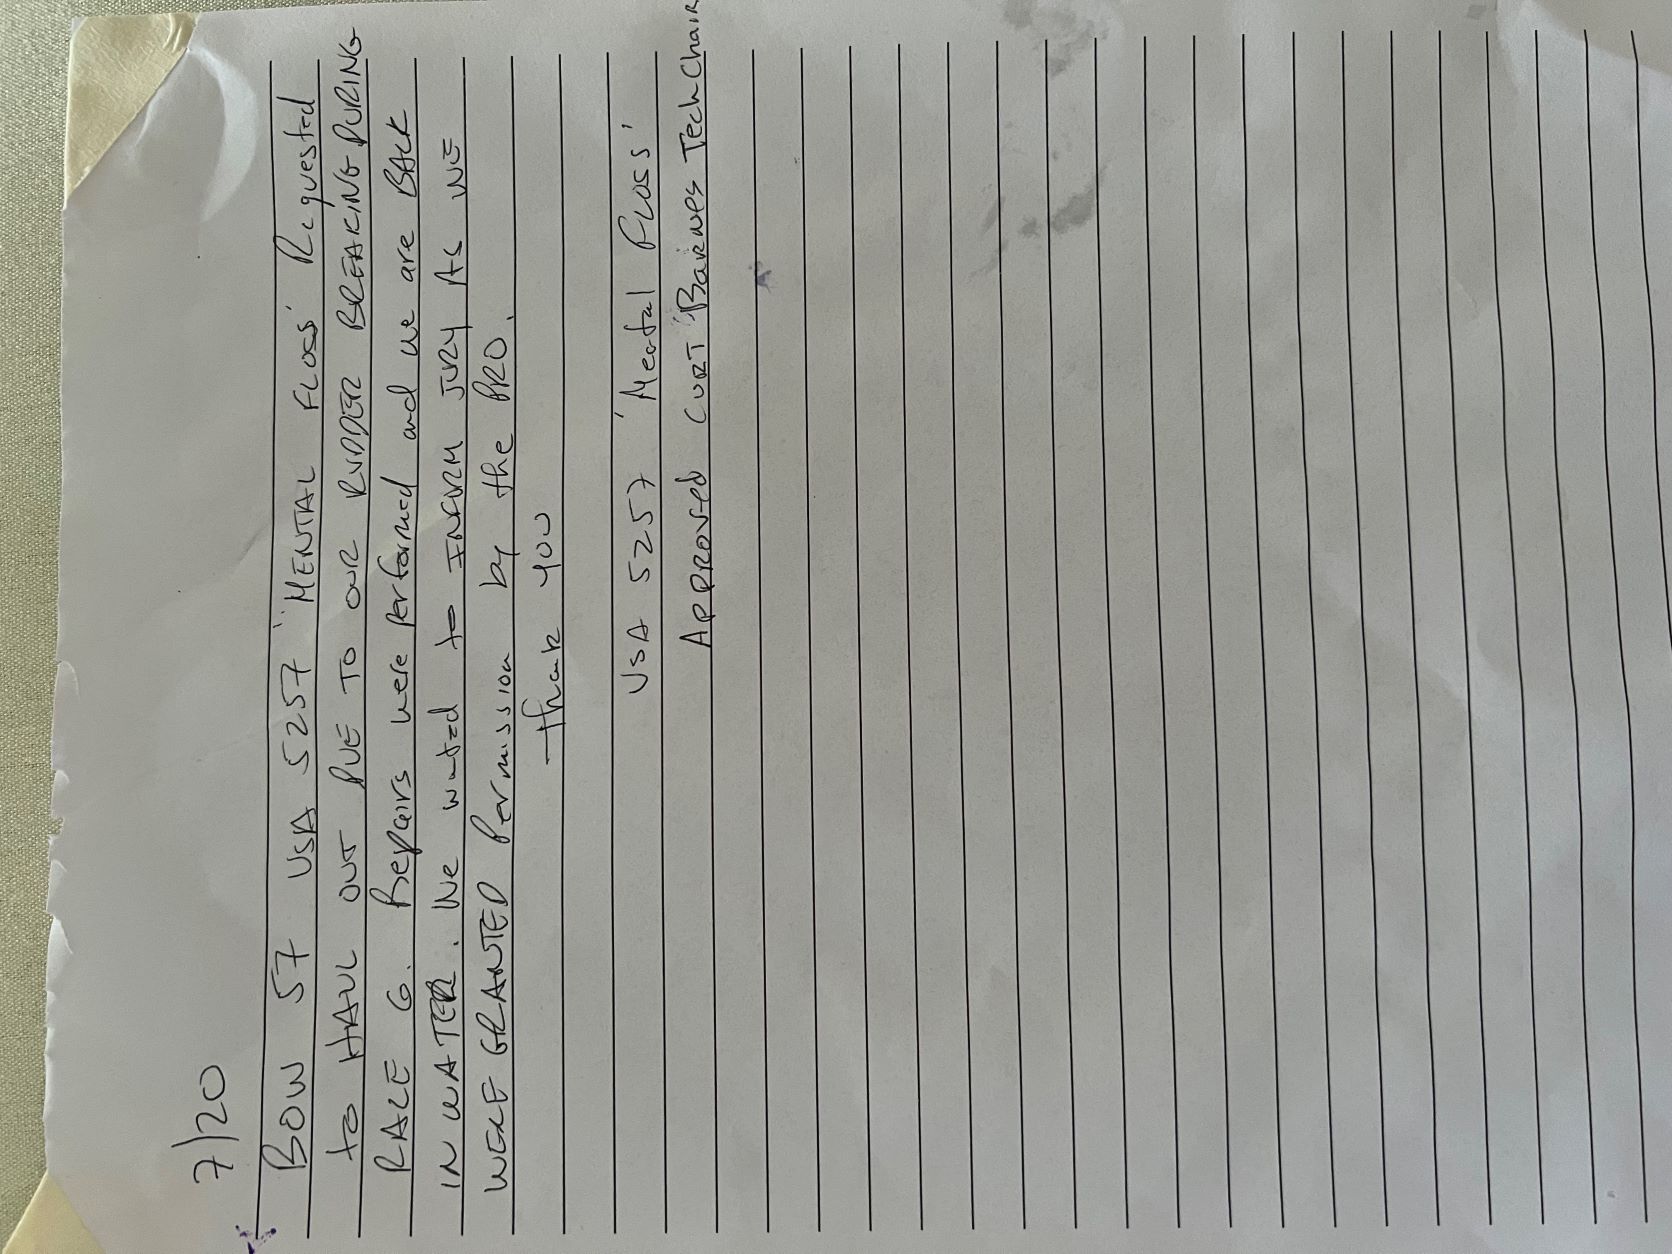 7/20
BOW 57 USA 5257 'MENTAL FLOSS' Requested
to HAUL OUT DUE TO OUR RUDDER BREAKING DURING
RACE 6. Repairs were performed and we are BACK
IN WATER. We wanted to INFORM JURY AS WE
WERE GRANTED Permission by the PRO.
Thank YOU
USA 5257 'Mental Floss'
Approved CURT Barnes Tech Chair